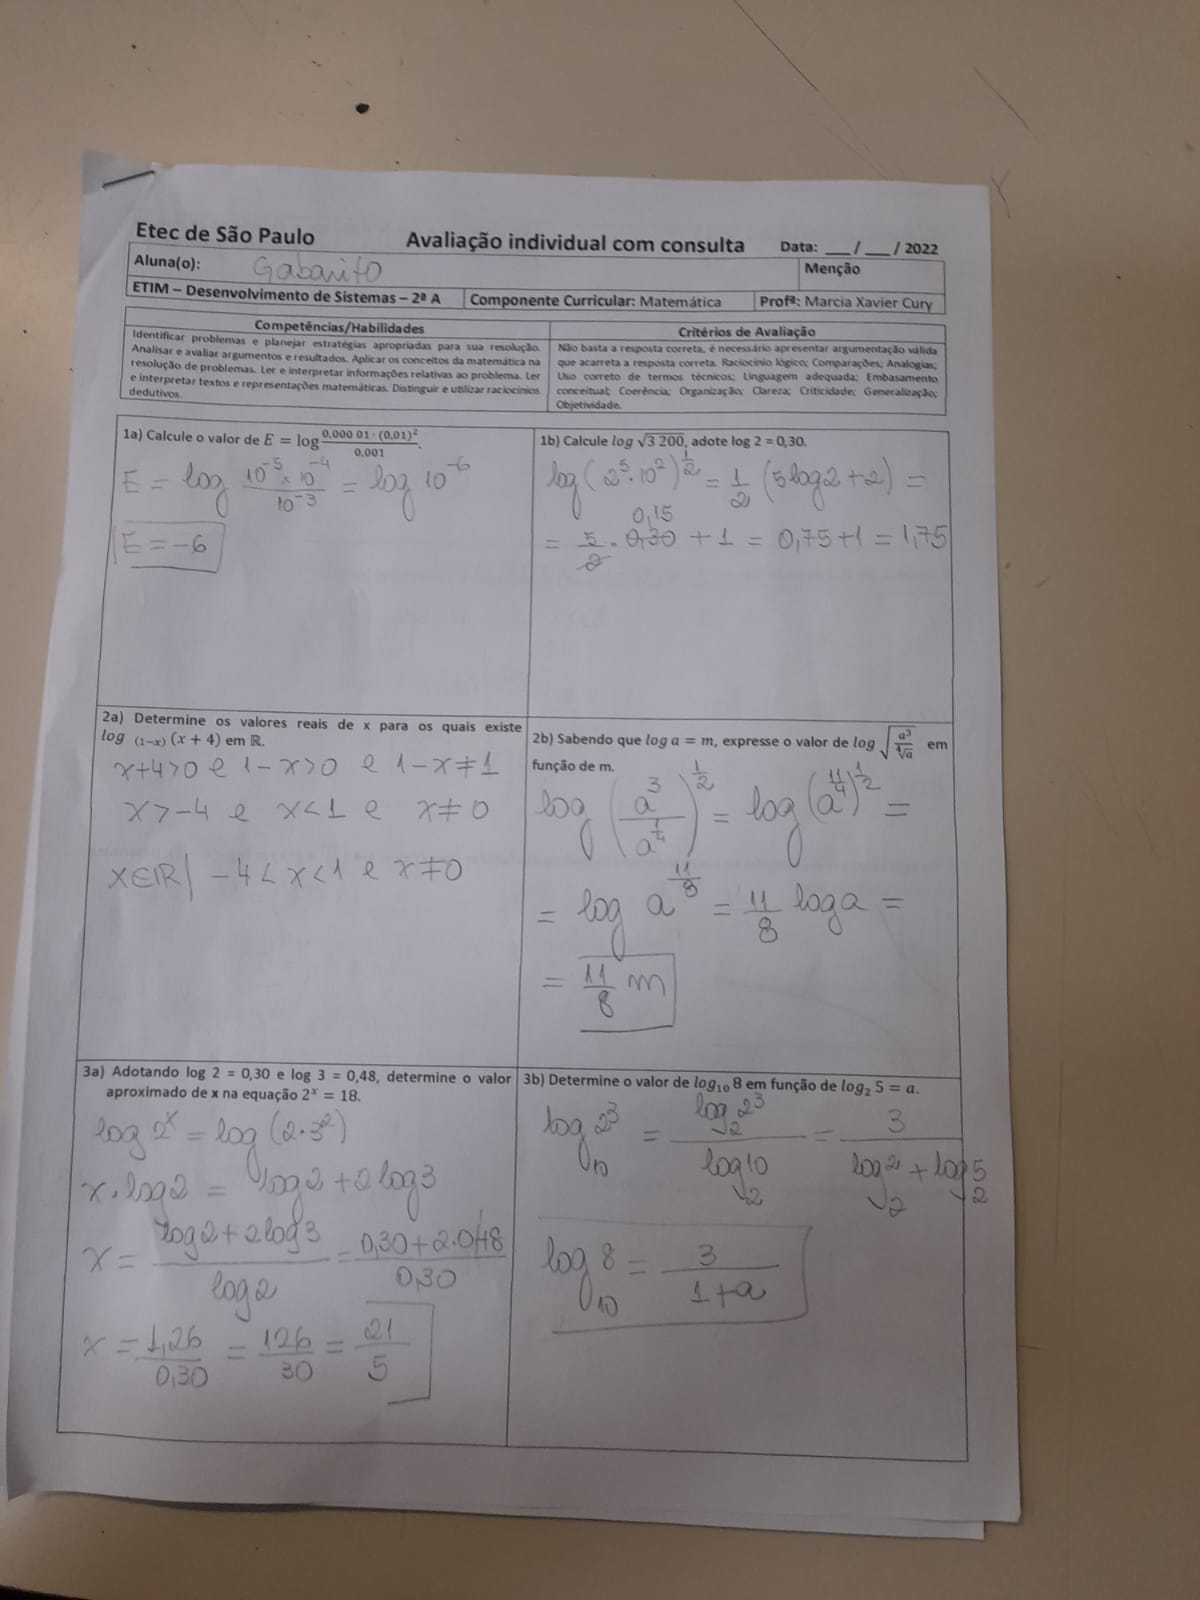 Etec de São Paulo Avaliação individual com consulta Data: ___ / ___ / 2022
Aluna(o): Gabarito Menção
ETIM – Desenvolvimento de Sistemas – 2ª A Componente Curricular: Matemática Profª: Marcia Xavier Cury
Competências/Habilidades
Identificar problemas e planejar estratégias apropriadas para sua resolução.
Analisar e avaliar argumentos e resultados. Aplicar os conceitos da matemática na
resolução de problemas. Ler e interpretar informações relativas ao problema. Ler
e interpretar textos e representações matemáticas. Distinguir e utilizar raciocínios
dedutivos.
Critérios de Avaliação
Não basta a resposta correta, é necessário apresentar argumentação válida
que acarreta a resposta correta. Raciocínio lógico; Comparações; Analogias;
Uso correto de termos técnicos; Linguagem adequada; Embasamento
conceitual; Coerência; Organização; Clareza; Criticidade; Generalização;
Objetividade.
1a) Calcule o valor de E = log (0,000 01 · (0,01)²)/(0,001).
E = log (10⁻⁵ x 10⁻⁴)/(10⁻³) = log 10⁻⁶
E = -6
1b) Calcule log √3 200, adote log 2 = 0,30.
log (2⁵ · 10²)^(1/2) = 1/2 (5 log 2 + 2) =
0,15
= 5/2 · 0,30 + 1 = 0,75 + 1 = 1,75
2a) Determine os valores reais de x para os quais existe
log (1−x) (x + 4) em ℝ.
x+4>0 e 1-x>0 e 1-x≠1
x>-4 e x<1 e x≠0
x∈ℝ| -4<x<1 e x≠0
2b) Sabendo que log a = m, expresse o valor de log √(a³/⁴√a) em
função de m.
log (a³/a^(1/4))^(1/2) = log (a^(11/4))^(1/2) =
= log a^(11/8) = 11/8 log a =
= 11/8 m
3a) Adotando log 2 = 0,30 e log 3 = 0,48, determine o valor
aproximado de x na equação 2ˣ = 18.
log 2ˣ = log (2·3²)
x · log 2 = log 2 + 2 log 3
x = (log 2 + 2 log 3)/(log 2) = (0,30 + 2·0,48)/(0,30)
x = 1,26/0,30 = 126/30 = 21/5
3b) Determine o valor de log₁₀ 8 em função de log₂ 5 = a.
log₁₀ 2³ = (log₂ 2³)/(log₂ 10) = 3/(log₂ 2 + log₂ 5)
log₁₀ 8 = 3/(1+a)